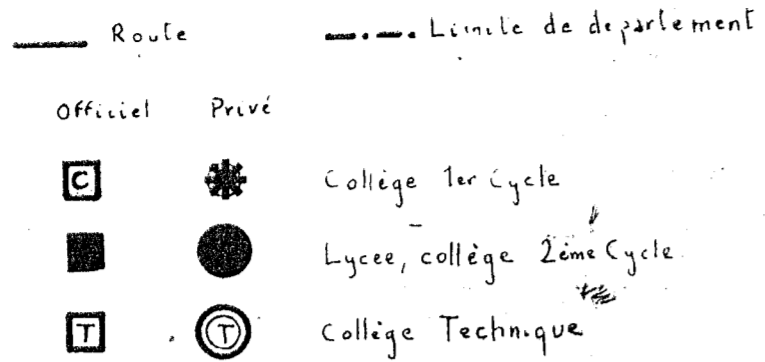 Route Limite de departement
Officiel Privé
C Collège 1er Cycle
Lycee, collège 2ème Cycle
T T Collège Technique